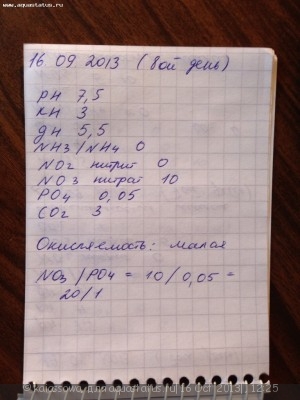 www.aquastatus.ru
16 09 2013 (8ой день)
pH 7,5
кH 3
дH 5,5
NH3/NH4 0
NO2 нитрит 0
NO3 нитрат 10
PO4 0,05
CO2 3
Окисляемость: малая
NO3/PO4 = 10/0,05 =
20/1
© kolossowa, для aquastatus.ru | 16 Oct 2013 | 12:25